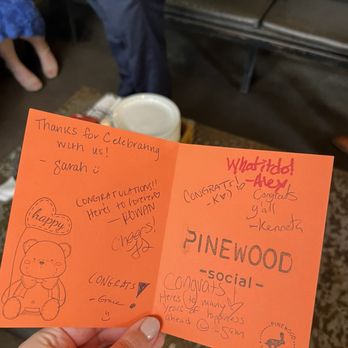 Thanks for Celebrating
with us!
- Sarah
CONGRATULATIONS!!
Here's to forever
- ROWAN
Cheers!
happy
CONGRATS!
- Grace
What it do!
- Alex
CONGRATS!
Congrats
y'all
- Kenneth
PINEWOOD
- social -
Congrats!
Here's to many
years of happiness
ahead
- Sam
PINEWOOD